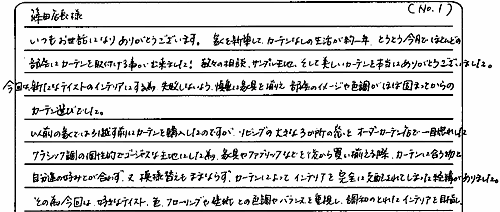 (No.1)
篠田店長様
いつもお世話になりありがとうございます。 家を新築して、カーテンなしの生活が約一年、とうとう今月でほとんどの
部屋にカーテンを取付ける事が出来ました! 数々の相談、サンプル、そして美しいカーテンを本当にありがとうございました。
今回は新たなテイストのインテリアにする為、失敗しないよう、慎重に家具を揃え、部屋のイメージや色調がほぼ固まってからの
カーテン選びでした。
以前の家では引越す前にカーテンを購入したのですが、リビングの大きな窓を オーダーカーテン店で一目惚れした
クラシック調の個性的でゴージャスな生地にした為、家具やファブリックなどを後から買い揃える際、カーテンに合う物と
自分達の好みとが合わず、又 模様替えもままならず、カーテンによって インテリアを 完全に支配されてしまった経験がありました。
その為 今回は、好きなテイスト、色、フローリングや建物との色調やバランスを重視し、調和のとれたインテリアを目指し